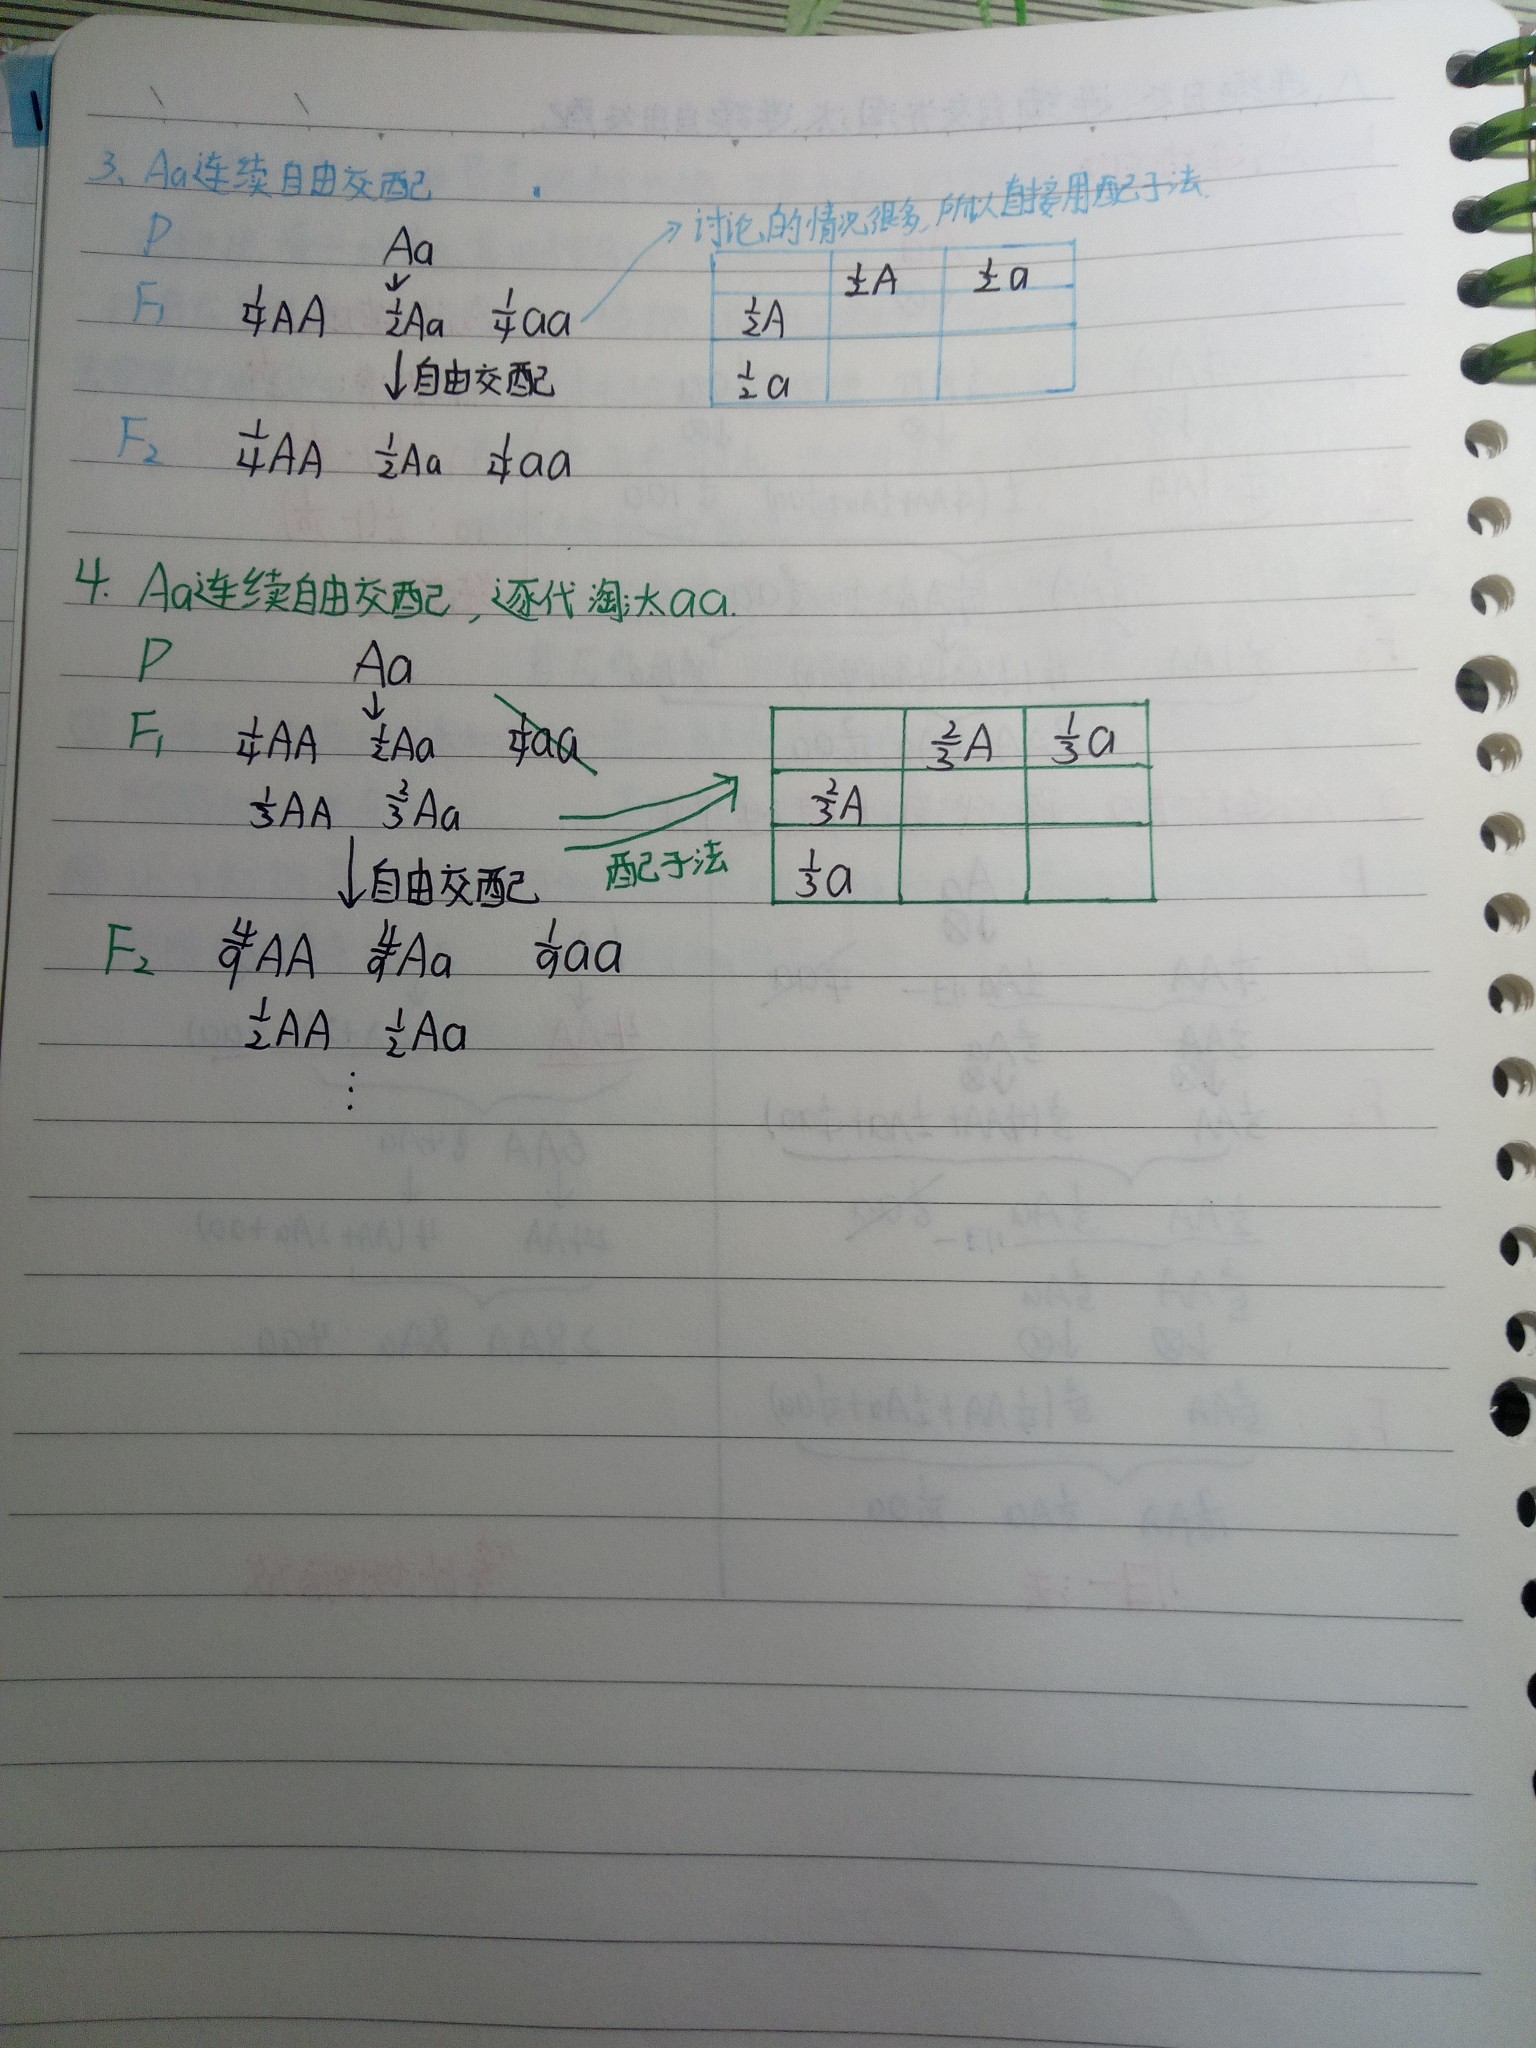 3、Aa连续自由交配
讨论的情况很多,所以直接用配子法.
P Aa
F₁ 1/4AA 1/2Aa 1/4aa
自由交配
F₂ 1/4AA 1/2Aa 1/4aa
1/2A 1/2a
1/2A
1/2a
4. Aa连续自由交配,逐代淘汰aa.
P Aa
F₁ 1/4AA 1/2Aa 1/4aa
1/3AA 2/3Aa
自由交配
配子法
2/3A 1/3a
2/3A
1/3a
F₂ 4/9AA 4/9Aa 1/9aa
1/2AA 1/2Aa
⋮